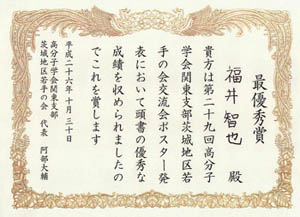 最優秀賞
福井智也 殿
貴方は第二十九回高分子
学会関東支部茨城地区若
手の会交流会ポスター発
表において頭書の優秀な
成績を収められましたの
でこれを賞します
平成二十六年十月三十日
高分子学会関東支部
茨城地区若手の会 代表 阿部大輔